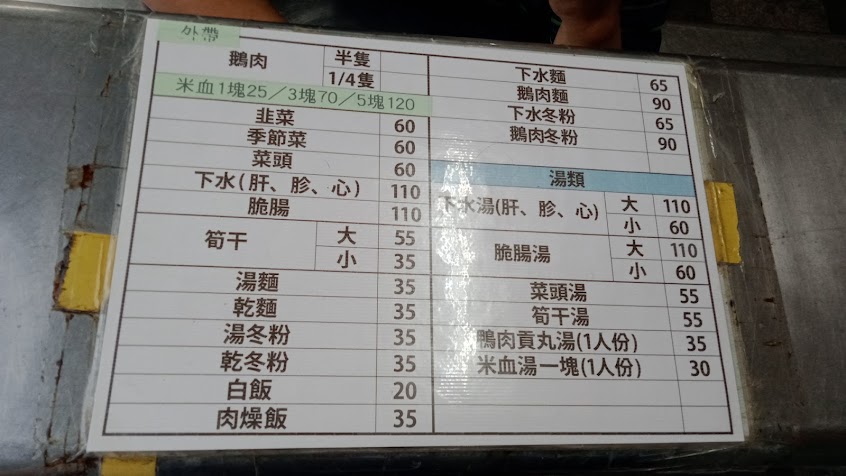 外帶
鵝肉 半隻
1/4隻
米血1塊25／3塊70／5塊120
韭菜 60
季節菜 60
菜頭 60
下水(肝、胗、心) 110
脆腸 110
筍干 大 55
小 35
湯麵 35
乾麵 35
湯冬粉 35
乾冬粉 35
白飯 20
肉燥飯 35
下水麵 65
鵝肉麵 90
下水冬粉 65
鵝肉冬粉 90
湯類
下水湯(肝、胗、心) 大 110
小 60
脆腸湯 大 110
小 60
菜頭湯 55
筍干湯 55
鴨肉貢丸湯(1人份) 35
米血湯一塊(1人份) 30